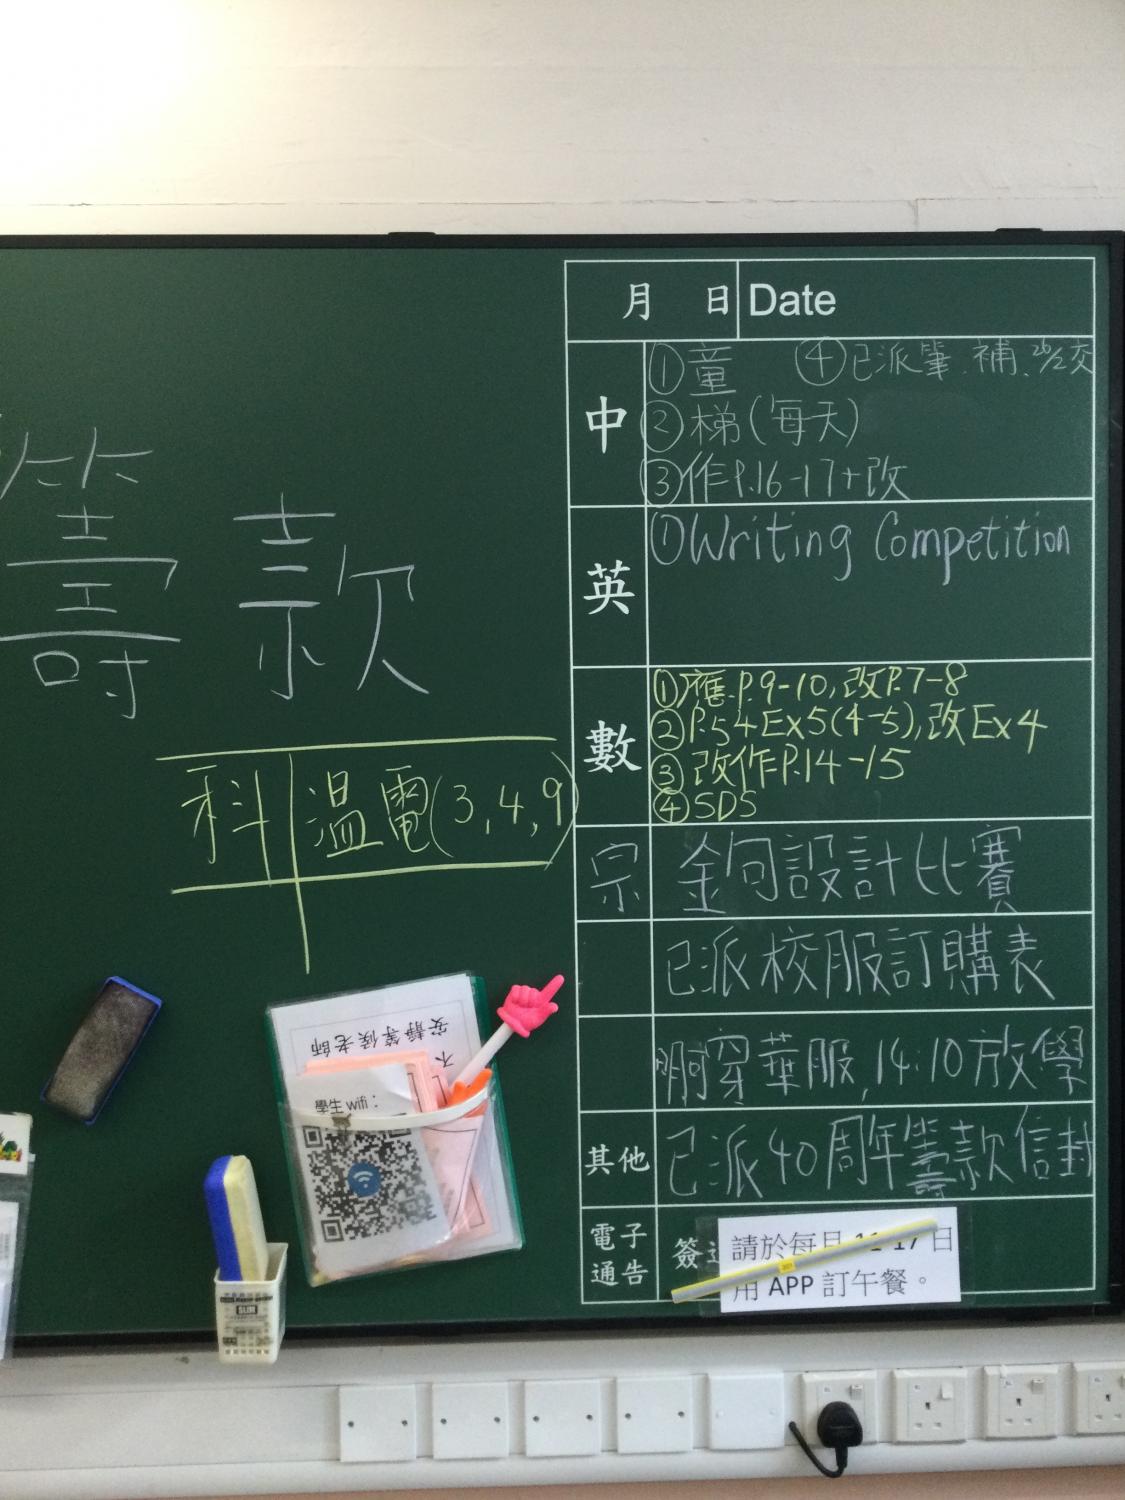 籌款
科 溫電(3,4,9)
月 日 Date
中
①童 ④已派筆.補.26/2交
②梯(每天)
③作P.16-17+改
英
①Writing Competition
數
①應.P.9-10,改P.7-8
②P.54Ex5(4-5),改Ex4
③改作P.14-15
④SDS
宗 金句設計比賽
已派校服訂購表
明穿華服,14:10放學
其他 已派40周年籌款信封
電子
通告
簽
請於每月 11-17日
用 APP 訂午餐。
安靜等候老師
不
學生 wifi：
SLIM